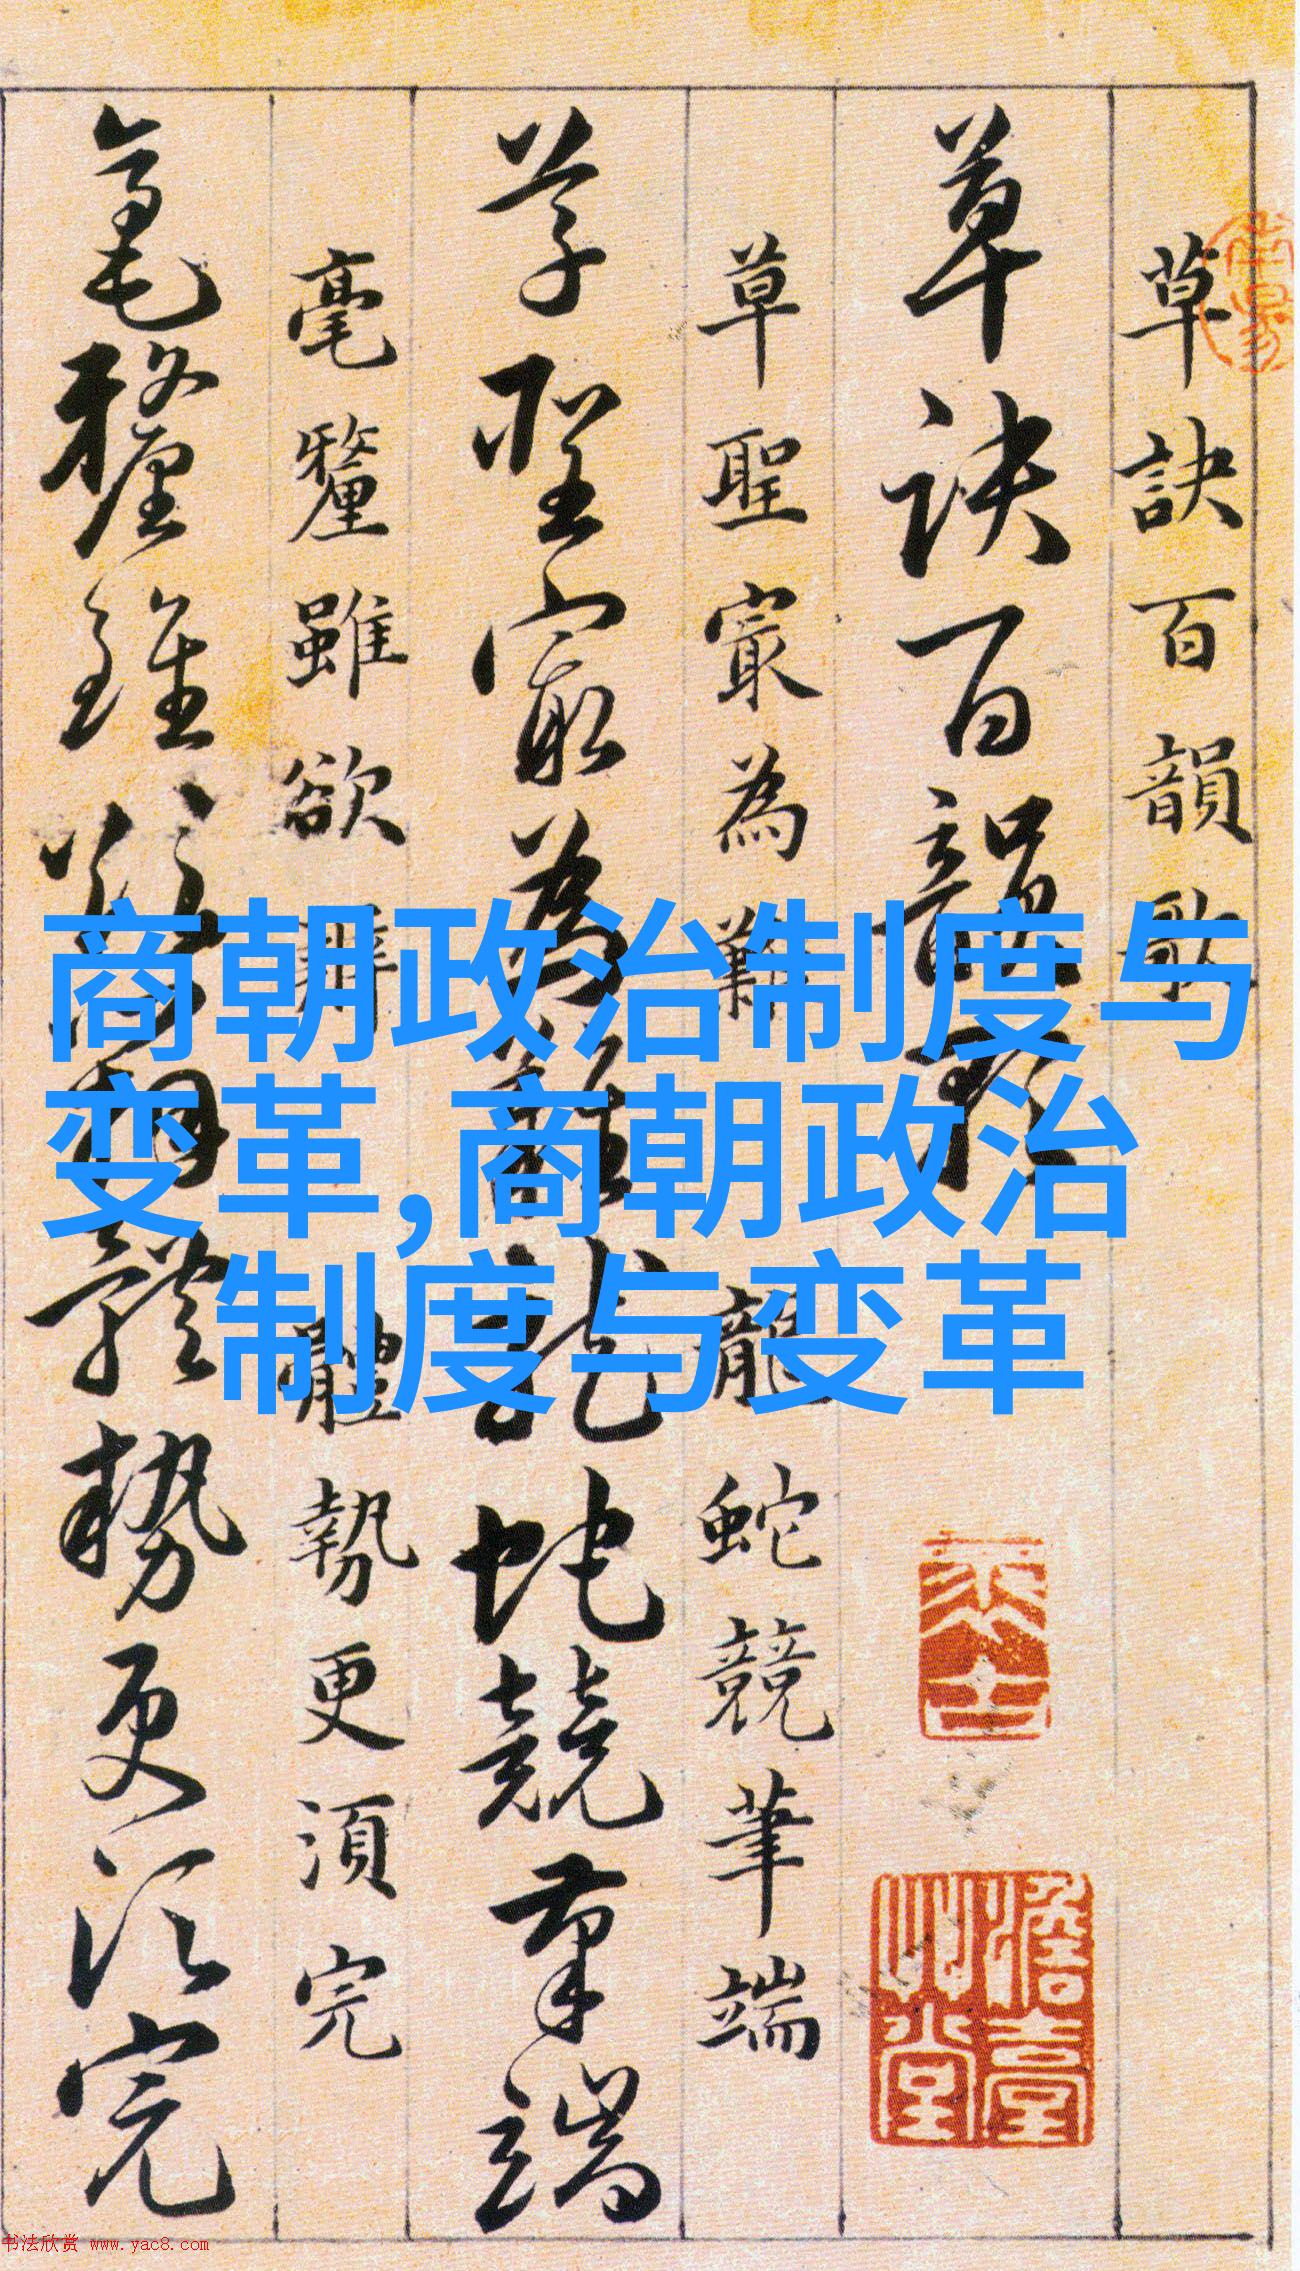 草訣百韻歌
草訣百韻歌
草聖寂為難龍蛇競筆端
草聖寂為難龍蛇競筆端
毫釐雖欲辨體勢更須完
毫釐雖欲辨體勢更須完
商朝政治制度与
变革,商朝政治
制度与变革
书法欣赏 www.yac8.com